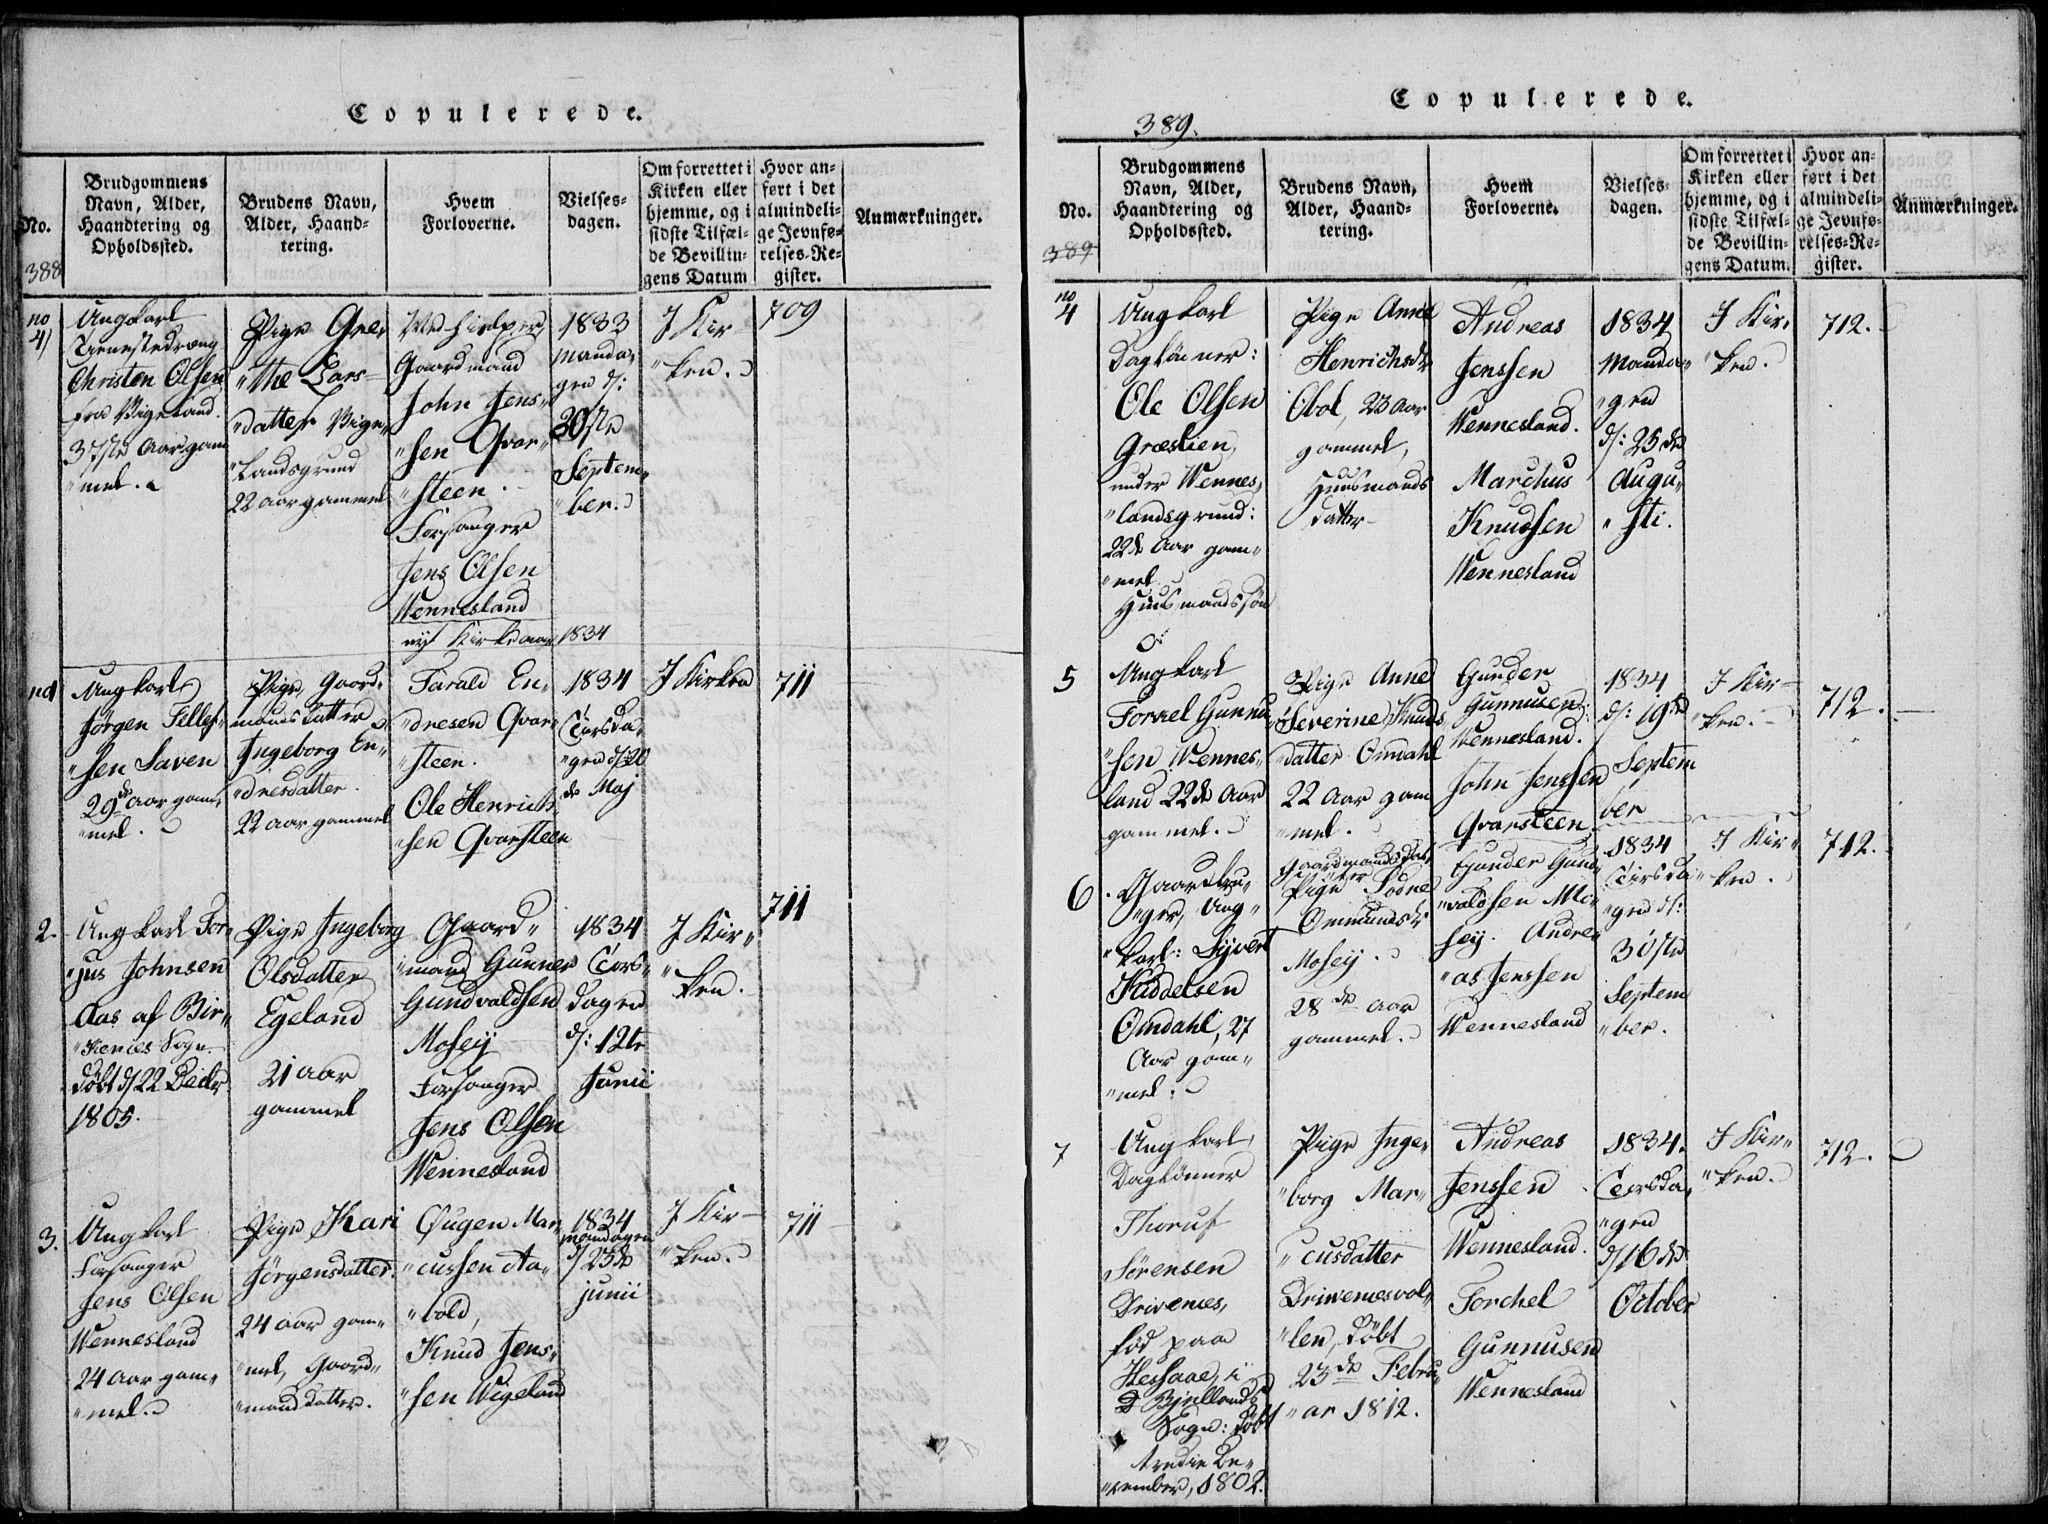 Copulerede.
No.
388
Brudgommens
Navn, Alder,
Haandtering og
Opholdssted.
Brudens Navn,
Alder, Haand-
tering.
Hvem
Forloverne.
Vielses-
dagen.
Om forrettet i
Kirken eller
hjemme, og i
sidste Tilfæl-
de Bevillin-
gens Datum
Hvor an-
ført i det
almindeli-
ge Jevnfø-
relses-Re-
gister.
Anmærkninger.
no
4)
Ungkarl
Tienestedreng
Christen Olsen
fra Vigeland.
37te Aar gam
"mel.
Pige Gre,
"the Lars-
"datter Vige,
"Landsgrund
22 aar gammel
Gaardmand
John Jens-
"sen Qvar-
"steen.
Forsanger
Jens Olsen
Wennesland
1833
Manda,
gen d:
30te
Septem,
"ber.
I Kir
"ken.
709
nyt Kirkeaar 1834
no1
Ungkarl
Jørgen Tellef-
"sen Saven
29de aar gam,
"mel.
Pige, Gaard,
mands datter
Ingeborg En-
"dresdatter.
22 aar gammel
Tarald En-
"dresen Qvar-
"steen.
Ole Henrich,
"sen Qvarsteen
1834
Tirsda,
"gen d: 20
de Maj
I Kirken
711
2.
Ungkarl Tor-
"jus Johnsen
Aas af Bir-
"Kenies Sogn.
døbt d/22 Decbr
1805.
Pige Ingeborg
Olsdatter
Egeland
21 aar
gammel
Gaard"
"mand Gunner
Gundvaldsen
Mosey
Forsanger
Jens Olsen
Wennesland
1834
Tors-
dagen
d: 12te
Junii
I Kir"
"ken.
711
3.
Ungkarl
Forsanger
Jens Olsen
Wennesland
24 aar gam-
"mel.
Pige Kari
Jørgensdatter.
24 aar gam-
"mel, Gaard-
"mand datter.
Øugen Mar-
"cussen Aa-
"bold,
Knud Jens-
"sen Wigeland
1834
Mandagen
d/23de
junii
I Kir-
"ken.
711
Copulerede.
389.
No.
389
Brudgommens
Navn, Alder,
Haandtering og
Opholdssted.
Brudens Navn,
Alder, Haand-
tering.
Hvem
Forloverne.
Vielses-
dagen.
Om forrettet i
Kirken eller
hjemme, og i
sidste Tilfæl-
de Bevillin-
gens Datum.
Hvor an-
ført i det
almindeli-
ge Jevnfø-
relses-Re-
gister.
Anmærkninger.
no
4
Ungkarl
Dagløner:
Ole Olsen
Græslien,
under Wennes,
"landsgrund:
22de Aar gam-
"mel.
Huusmandssøn
Pige Anne
Henrichsdr
Obol, 23 aar
gammel,
Huusmands
datter
Andreas
Jenssen
Wennesland.
Marchus
Knudsen
Wennesland
1834
Manda-
"gen
d: 25de
Augu,
"sti.
I Kir,
"ken.
712.
5
Ungkarl
Torkel Gunnu
"sen Wennes,
land 22de Aar
gammel.
Pige Anne
Severine Knuds
"datter Omdahl
22 Aar gam
"mel.
Gaardmandsdat,
ter
Gunder
Gunnusen
Wennesland.
John Jenssen
Qvarsteen
1834
d: 19de
Septem
ber
I Kir-
"ken.
712.
6
Gaardbru-
"ger, Ung-
"karl: Syvert
Kiddelsen
Omdahl, 27
Aar gam-
"mel.
Pige Todne
Ommundsdr
Mosey.
28de aar
gammel.
Gunder Gund-
"valdsen Mo-
sey. Andre-
"as Jenssen
Wennesland
1834
Tirsda-
"gen d:
30te
Septem
"ber.
I Kir"
ken.
712.
7
Ungkarl,
Daglønner
Thoruf
Sørensen
Drivenes,
fød paa
Hessaae, i
Bjellands
Sogn: døbt
tredie De-
"cember, 1802.
Pige Inge-
"borg Mar-
"cusdatter
Driwenesvol-
"len, døbt
23de Febru-
"ar 1812.
Andreas
Jenssen
Wennesland.
Torchel
Gunnusen
Wennesland
1834.
Torsda,
"gen
d/16de
October
I Kir"
"ken.
712.